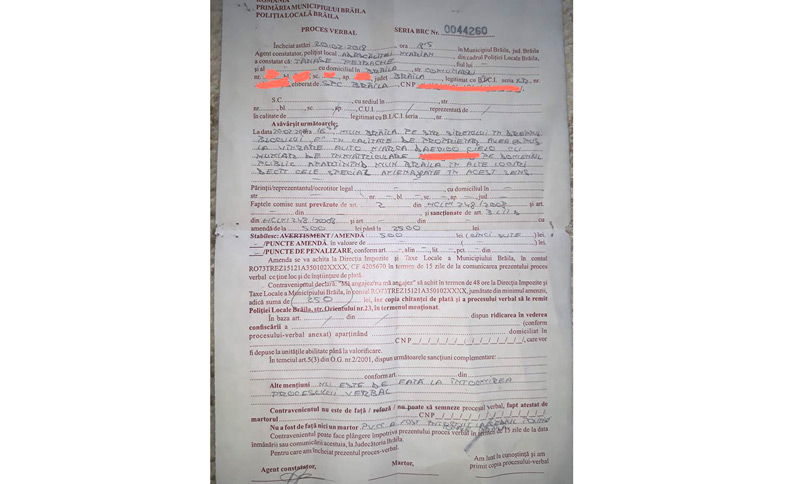 ROMÂNIA
PRIMĂRIA MUNICIPIULUI BRĂILA
POLIȚIA LOCALĂ BRĂILA
PROCES VERBAL SERIA BRC Nr. 0044260
Încheiat astăzi 20.02.2018, ora în Municipiul Brăila, jud. Brăila
Agent constatator, polițist local din cadrul Poliției Locale Brăila,
a constatat că: TĂNASE fiul lui -
și al cu domiciliul în BRĂILA, str.
nr. bl. sc. ap. județ BRĂILA, legitimat cu B.I./C.I. seria nr.
eliberat de SPC BRĂILA, CNP
S.C. , cu sediul în str.
nr. , bl. , sc , ap. , C.U.I. / reprezentată de
în calitate de legitimat cu B.I./C.I. seria , nr.
A săvârșit următoarele:
La data MUN BRĂILA PE STR SIRETULUI ÎN DREPTUL
BLOCULUI ÎN CALITATE DE PROPRIETAR
LA VÎNZARE AUTO MARCA DAEWOO CIELO CU
NUMĂR DE ÎNMATRICULARE PE DOMENIUL
PUBLIC APARȚINÎND MUN BRĂILA ÎN ALTE LOCURI
DECÎT CELE SPECIAL AMENAJATE ÎN ACEST SENS
Părinții/reprezentantul/ocrotitor legal - , cu domiciliul în -
str. - nr. - bl. - sc. - ap. - jud. -
Faptele comise sunt prevăzute de art. 2 din HCLM 248/2008 și art.
- din - , și sancționate de art. 3
din HCLM 248/2008 și art. - din - cu
amendă de la 500 lei până la 2500 lei.
Stabilesc: AVERTISMENT / AMENDĂ / 500 lei (CINCI SUTE) lei
- /PUNCTE AMENDĂ, în valoare de - ( - ) lei
- /PUNCTE DE PENALIZARE, conform art. - alin - , lit - , pct. - din -
Amenda se va achita la Direcția Impozite și Taxe Locale a Municipiului Brăila, în contul
RO73TREZ15121A350102XXXX, CF 4205670 în termen de 15 zile de la comunicarea prezentului proces
verbal ce ține loc și de înștiințare de plată.
Contravenientul declară: "Mă angajez/nu mă angajez" să achit în termen de 48 ore la Direcția Impozite și
Taxe Locale a Municipiului Brăila, în contul RO73TREZ15121A350102XXXX, jumătate din minimul amenzii,
adică suma de (250) lei, iar copia chitanței de plată și a procesului verbal să le remit
Poliției Locale Brăila, str. Orientului nr.23, în termenul menționat.
În baza art. / din / dispun ridicarea în vederea
confiscării a (conform
procesului-verbal anexat) aparținând domiciliat în
CNP , care vor
fi depuse la unitățile abilitate până la valorificare.
În temeiul art.5(3) din O.G. nr.2/2001, dispun următoarele sancțiuni complementare:
conform art. din
Alte mențiuni NU ESTE DE FAȚĂ LA ÎNTOCMIREA
PROCESULUI VERBAL
Contravenientul nu este de față / refuză / nu poate să semneze procesul verbal, fapt atestat de
martorul CNP
Nu a fost de față nici un martor
Contravenientul poate face plângere împotriva prezentului proces verbal în termen de 15 zile de la data
înmânării sau comunicării acestuia, la Judecătoria Brăila.
Pentru care am încheiat prezentul proces-verbal.
Agent constatator, Martor, Am luat la cunoștință și am
primit copia procesului-verbal